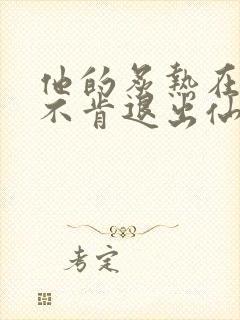 他的炙热在
不肯退出仙
考定